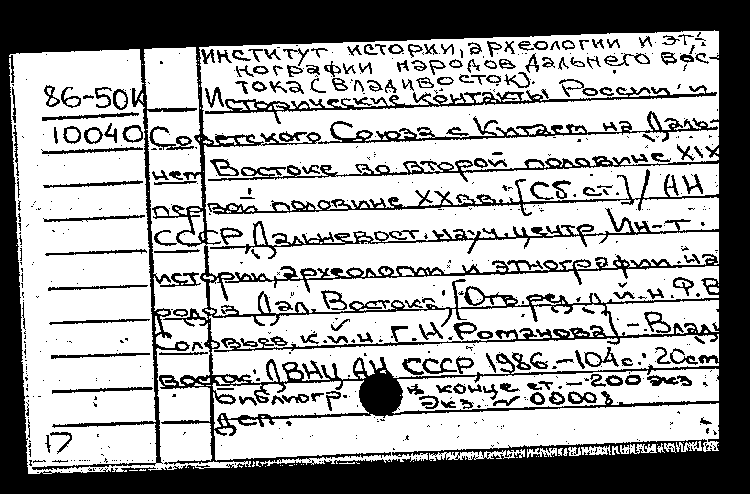 Институт истории, археологии и эт-
нографии народов Дальнего Вос-
тока (Владивосток).
86-50к Исторические контакты России и
10040 Советского Союза с Китаем на Даль-
нем Востоке во второй половине XIX
первой половине XX вв.: [Сб. ст.] / АН
СССР, Дальневост. науч. центр, Ин-т.
истории, археологии и этнографии на
родов Дал. Востока; [Отв. ред. д.и.н. Ф.В
Соловьев, к.и.н. Г.Н. Романова]. - Влади
восток: ДВНЦ АН СССР, 1986. - 104 с.; 20 см
Библиогр. в конце ст. - 200 экз.
Экз. № 00008.
Деп.
17